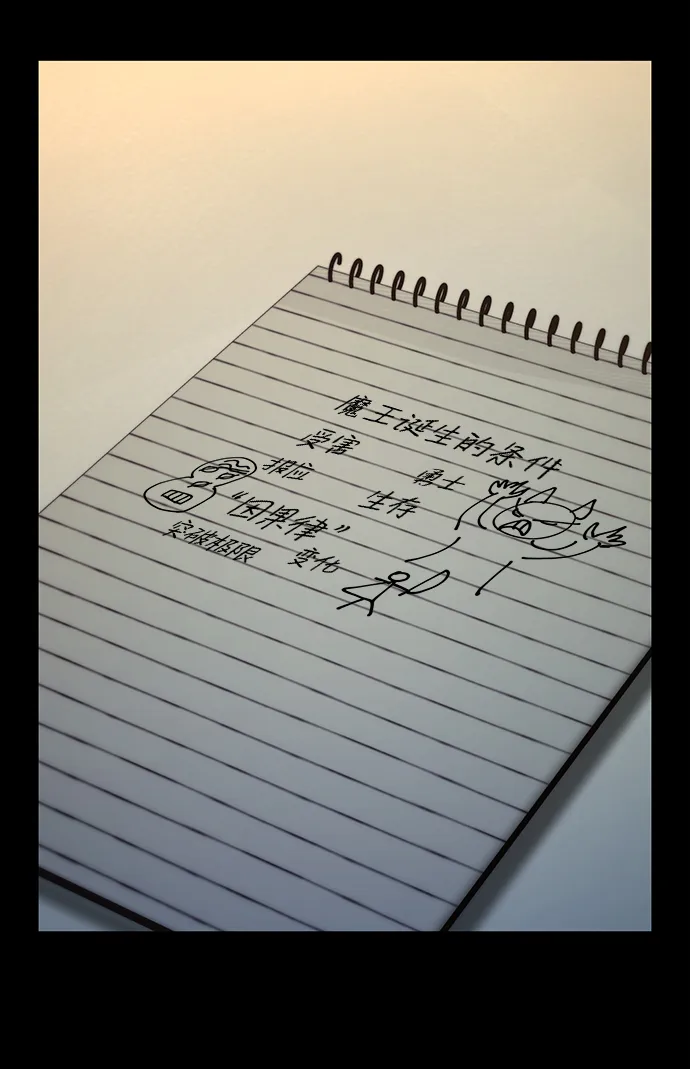 魔王诞生的条件
受害
报应
勇士
生存
“因果律”
突破极限
变化